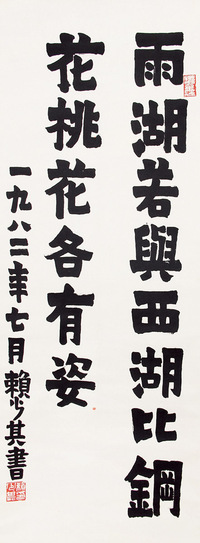 雨湖若與西湖比鋼
花桃花各有姿
一九八二年七月賴少其書